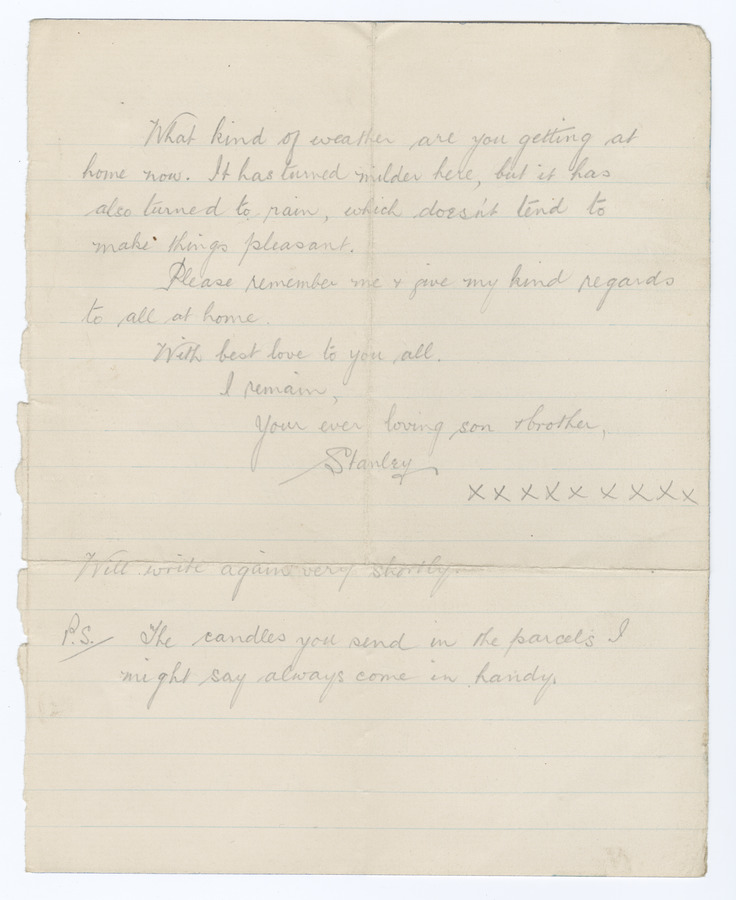 What kind of weather are you getting at
home now. It has turned milder here, but it has
also turned to rain, which doesn't tend to
make things pleasant.
Please remember me & give my kind regards
to all at home.
With best love to you all.
I remain,
Your ever loving son & brother,
Stanley
x x x x x x x x x
Will write again very shortly
P.S. The candles you send in the parcels I
might say always come in handy.